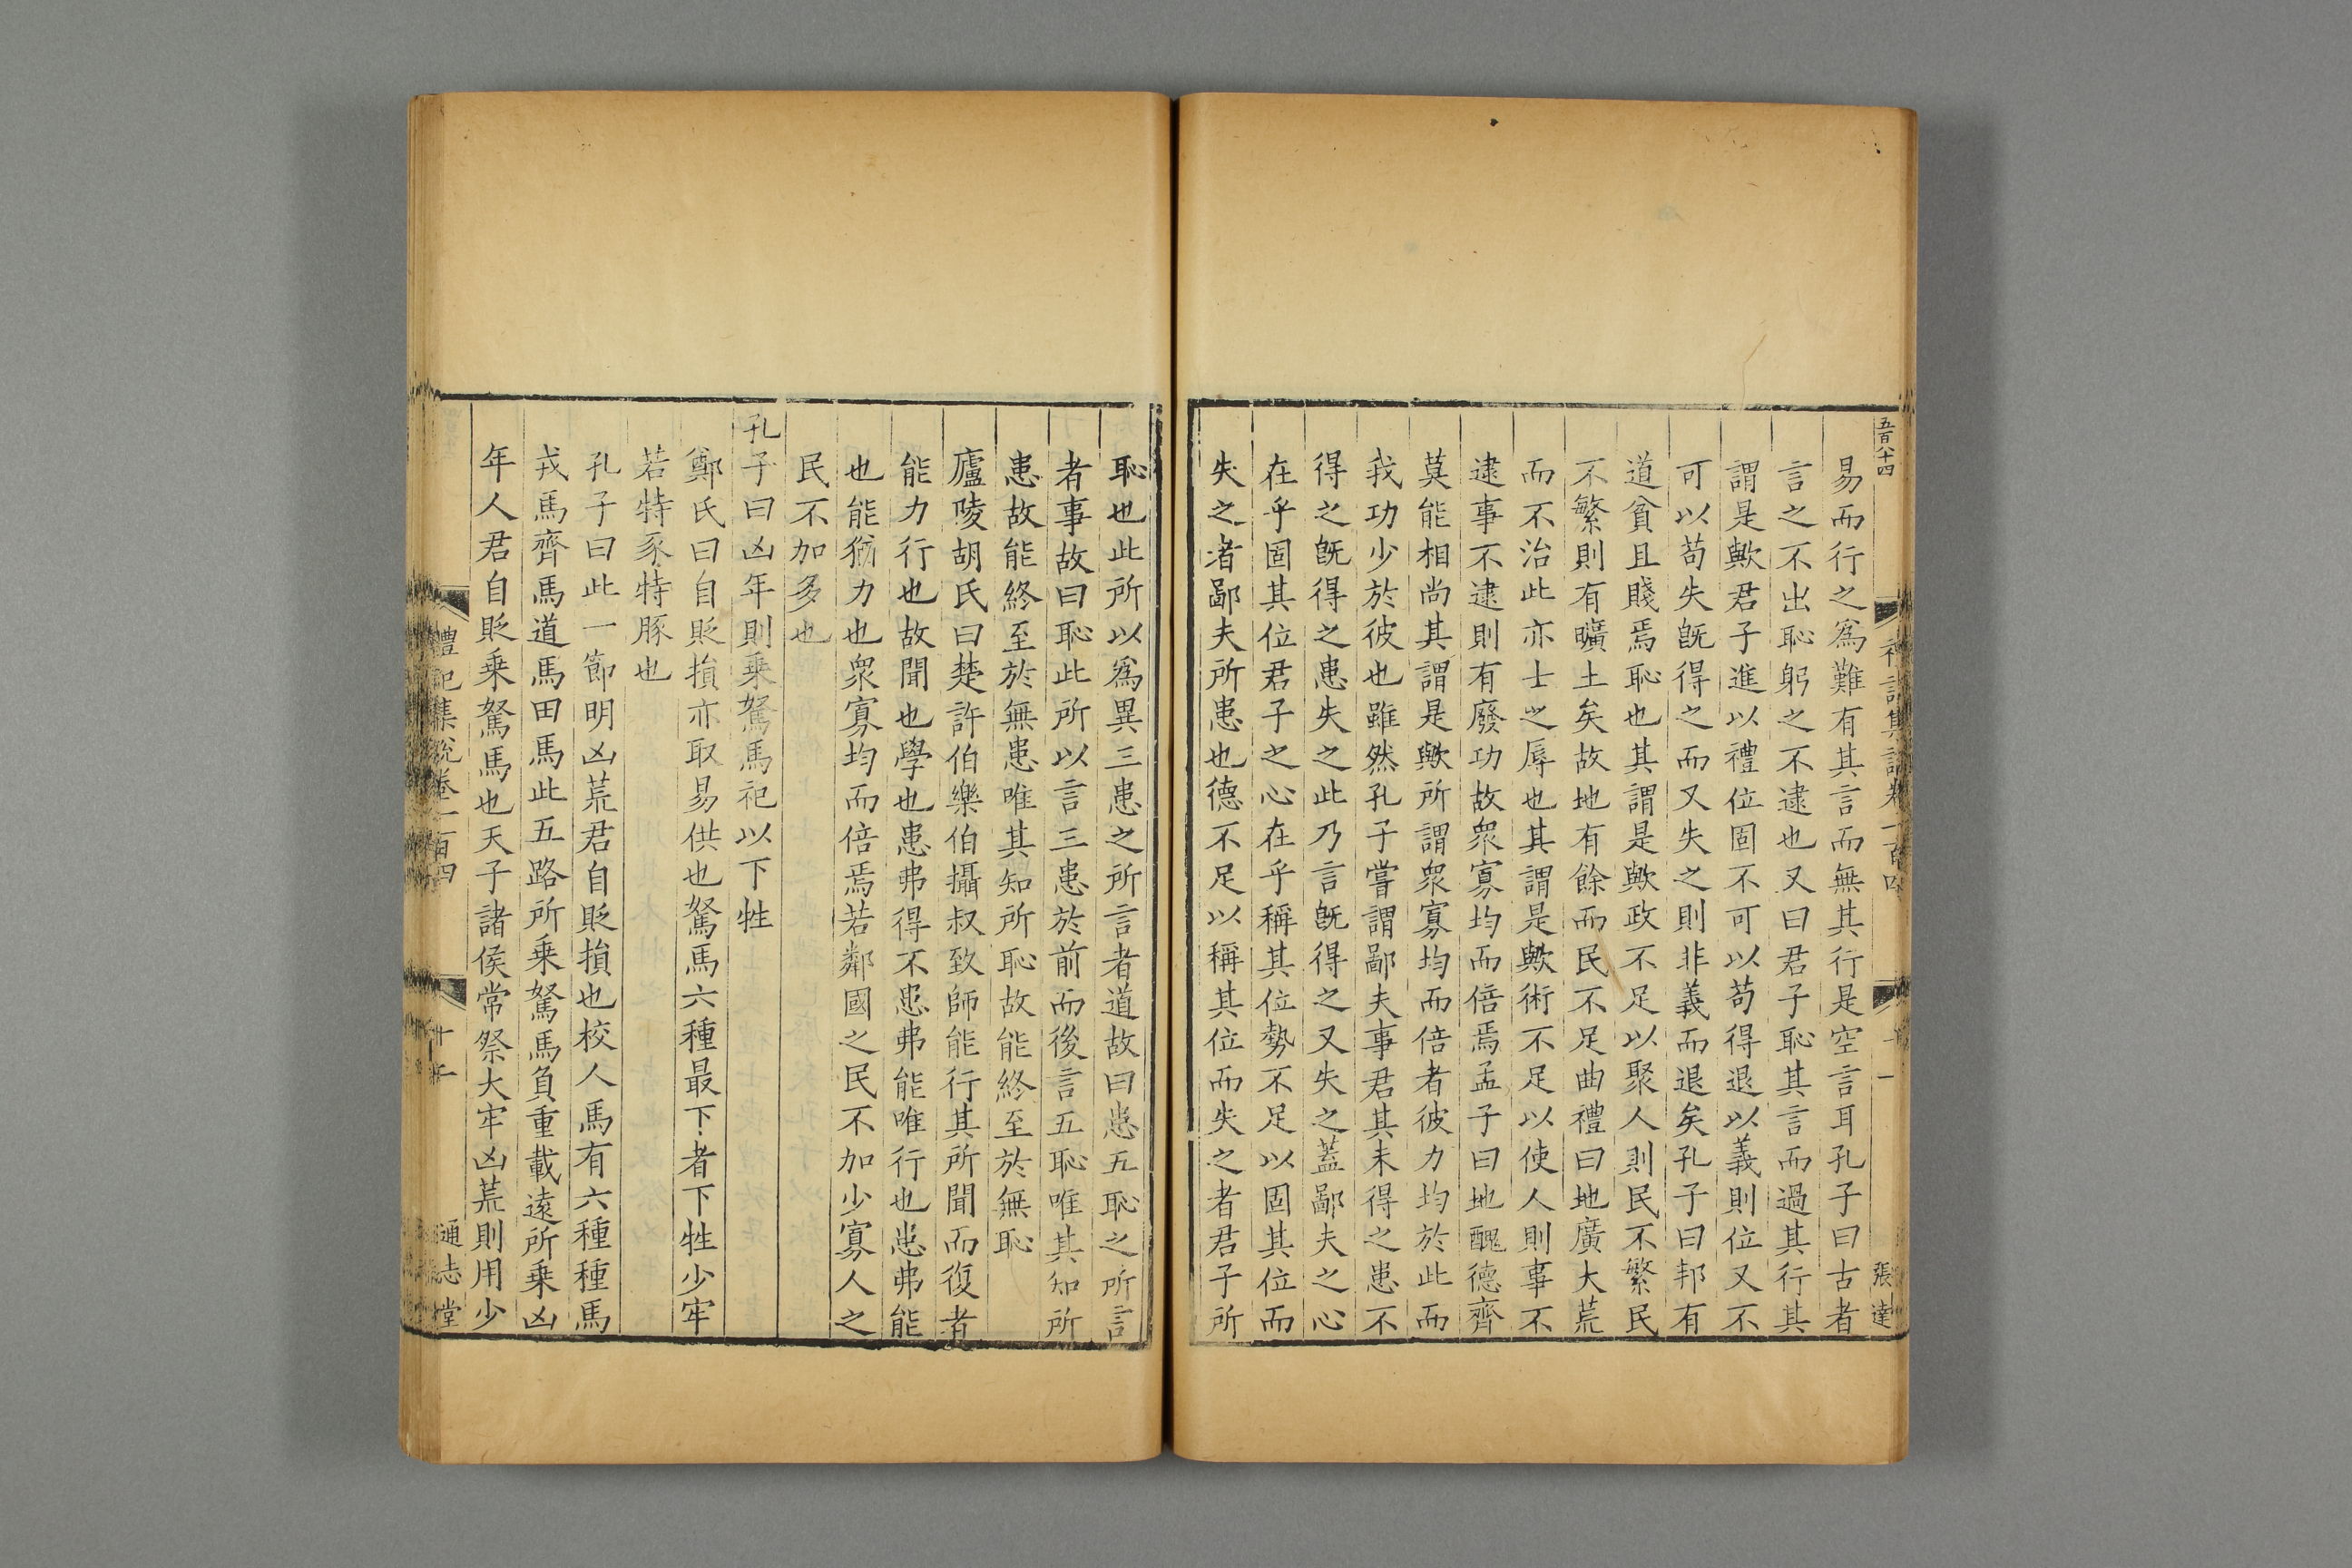 五百八十四
禮記集說卷一百四
張達
易而行之爲難有其言而無其行是空言耳孔子曰古者
言之不出恥躬之不逮也又曰君子恥其言而過其行其
謂是歟君子進以禮位固不可以苟得退以義則位又不
可以苟失旣得之而又失之則非義而退矣孔子曰邦有
道貧且賤焉恥也其謂是歟政不足以聚人則民不繁民
不繁則有曠土矣故地有餘而民不足曲禮曰地廣大荒
而不治此亦士之辱也其謂是歟術不足以使人則事不
逮事不逮則有廢功故衆寡均而倍焉孟子曰地醜德齊
莫能相尚其謂是歟所謂衆寡均而倍者彼力均於此而
我功少於彼也雖然孔子嘗謂鄙夫事君其未得之患不
得之旣得之患失之此乃言旣得之又失之蓋鄙夫之心
在乎固其位君子之心在乎稱其位勢不足以固其位而
失之者鄙夫所患也德不足以稱其位而失之者君子所
恥也此所以爲異三患之所言者道故曰患五恥之所言
者事故曰恥此所以言三患於前而後言五恥唯其知所
患故能終至於無患唯其知所恥故能終至於無恥
廬陵胡氏曰楚許伯樂伯攝叔致師能行其所聞而復者
能力行也故聞也學也患弗得不患弗能唯行也患弗能
也能猶力也衆寡均而倍焉若鄰國之民不加少寡人之
民不加多也
孔子曰凶年則乗駑馬祀以下牲
鄭氏曰自貶損亦取易供也駑馬六種最下者下牲少牢
若特豕特豚也
孔子曰此一節明凶荒君自貶損也校人馬有六種種馬
戎馬齊馬道馬田馬此五路所乗駑馬負重載遠所乗凶
年人君自貶乗駑馬也天子諸侯常祭大牢凶荒則用少
禮記集說卷一百四
十一
通志堂